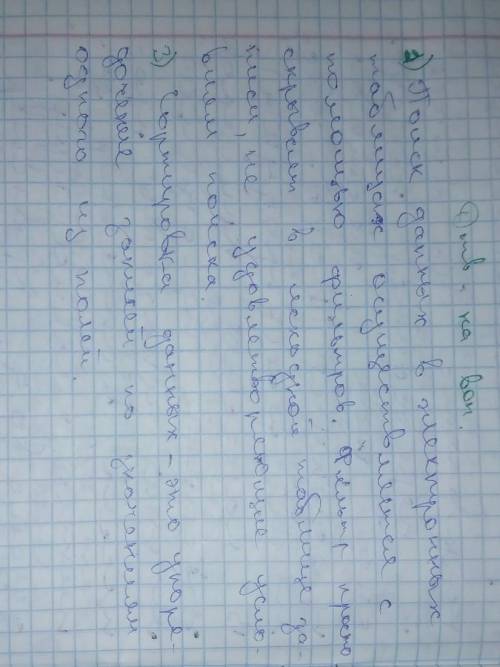 ① тв. на воп.
1) Поиск данных в электронных
таблицах осуществляется с
помощью фильтров. Фильтр просто
скрывает в исходной таблице за-
писи, не удовлетворяющие усло-
виям поиска.
2) Сортировка данных - это упоря-
дочение записей по значениям
одного из полей.